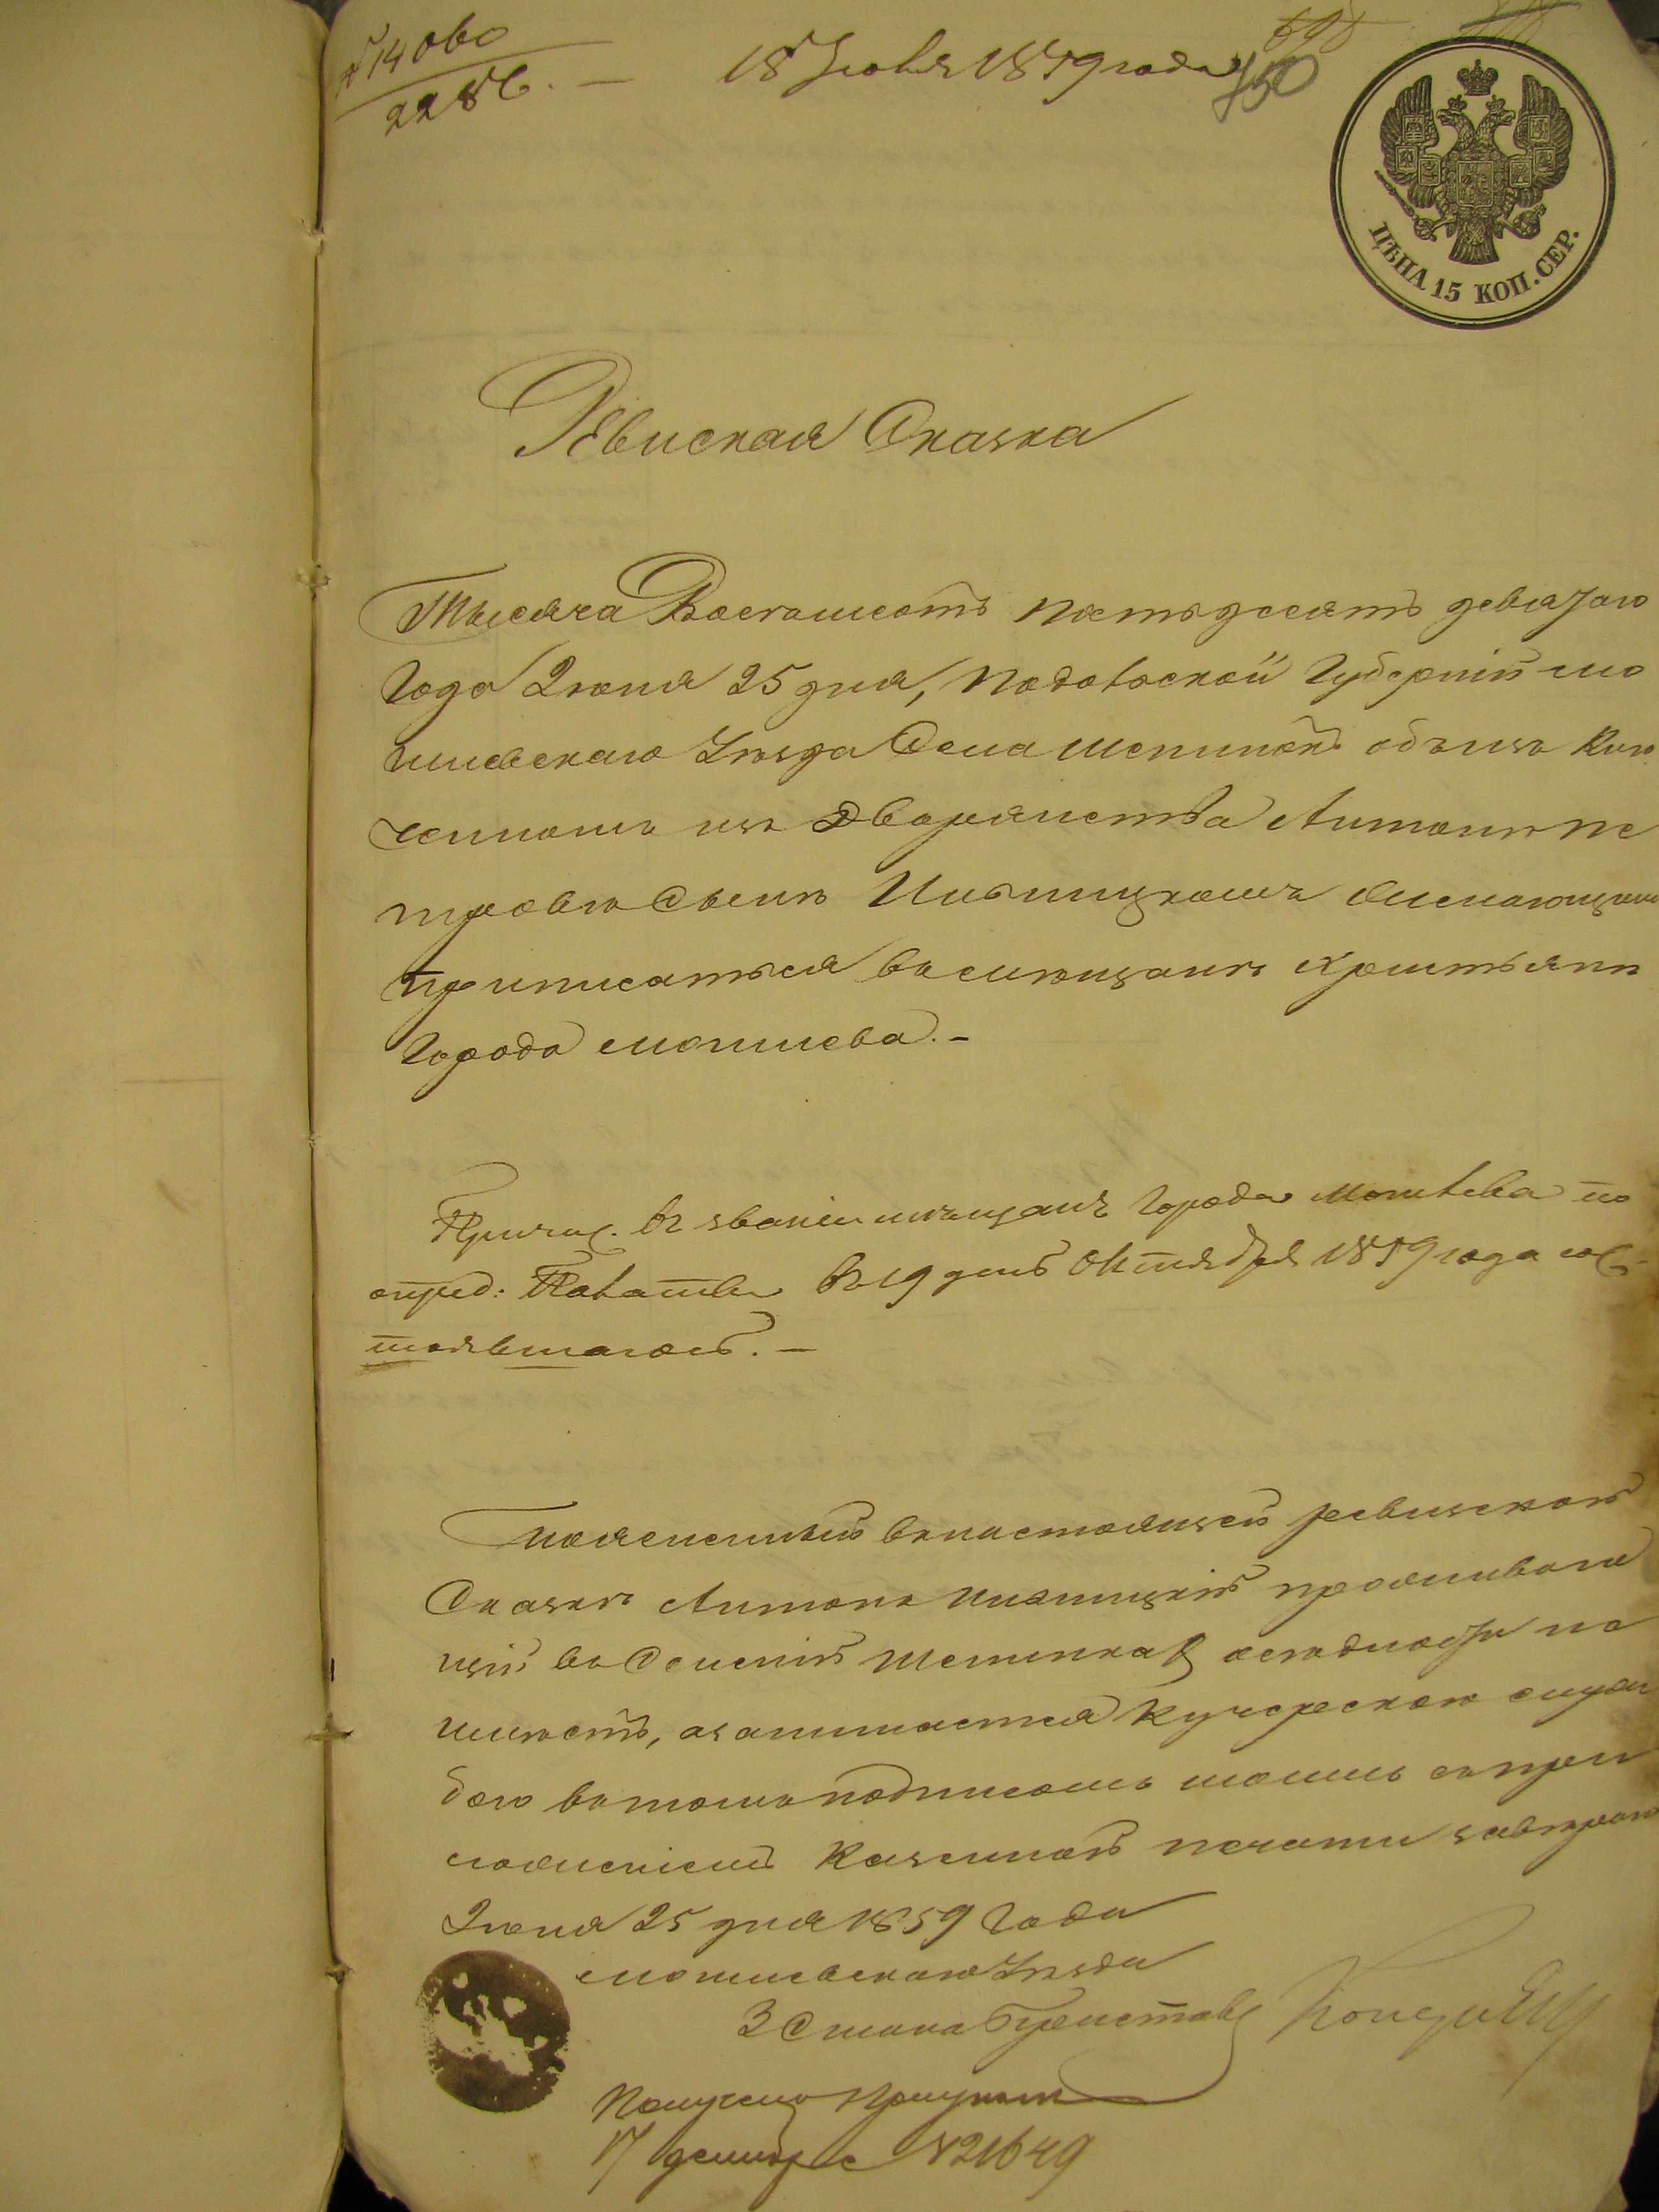 № 14060
2286. —
18 Іюля 1859 года
698
150
ЦѢНА 15 КОП. СЕР.
Ревиская Сказка
Тысяча Восемьсотъ пятьдесятъ девятаго
Года Іюня 25 дня, Подольской Губерніи мо
гилевскаго Уѣзда Села объ
ченномъ изъ Дворянства Антонѣ Пе
тровѣ Сынѣ желающимъ
приписаться
Города могилева. —
Причис. въ званіи мѣщанъ Города Могилева по
опред: Палаты въ 19 день Октября 1859 года сос
тоявшагось. —
Поясненный въ настоящей ревизской
Сказкѣ Антонъ проживаю
щій въ Селеніи осѣдлости не
имѣетъ, а занимается Кучерскою служ
бою въ томъ подписомъ моимъ съ при
ложеніемъ Казенной печати завѣряю
Іюня 25 дня 1859 Года
могилевскаго Уѣзда
3 Стана Приставъ
Получено
17 декабря №21649